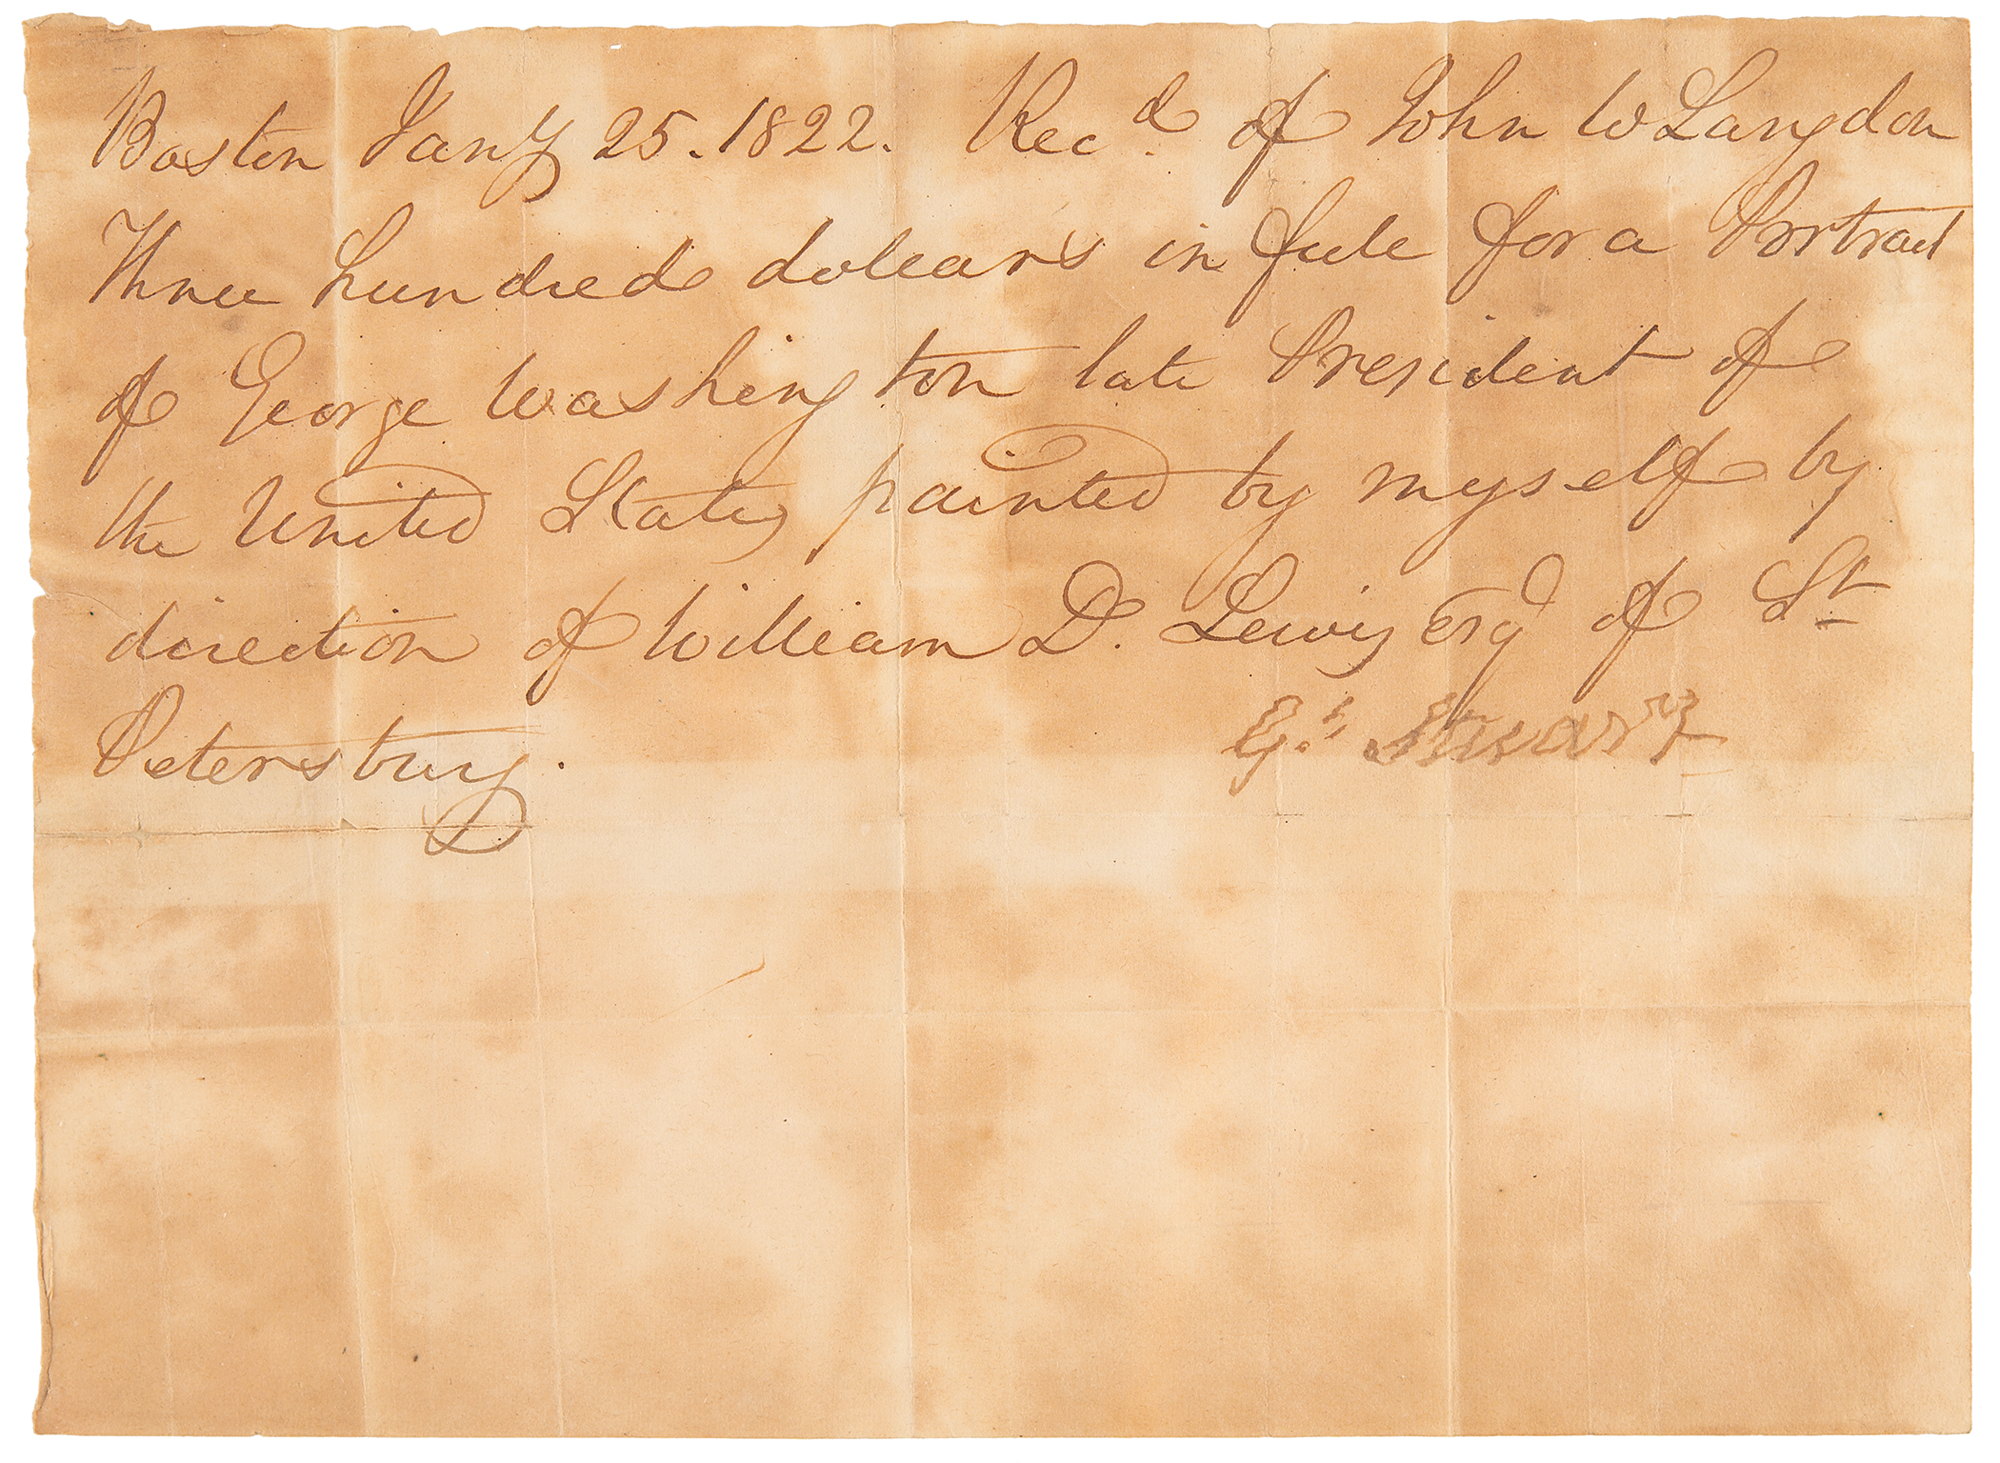 Boston Jany 25. 1822. Recd. of John W Langdon
Three hundred dollars in full for a Portrait
of George Washington late President of
the United States painted by myself by
direction of William D. Lewis Esqr of St
Petersburg.
Gt. Stuart